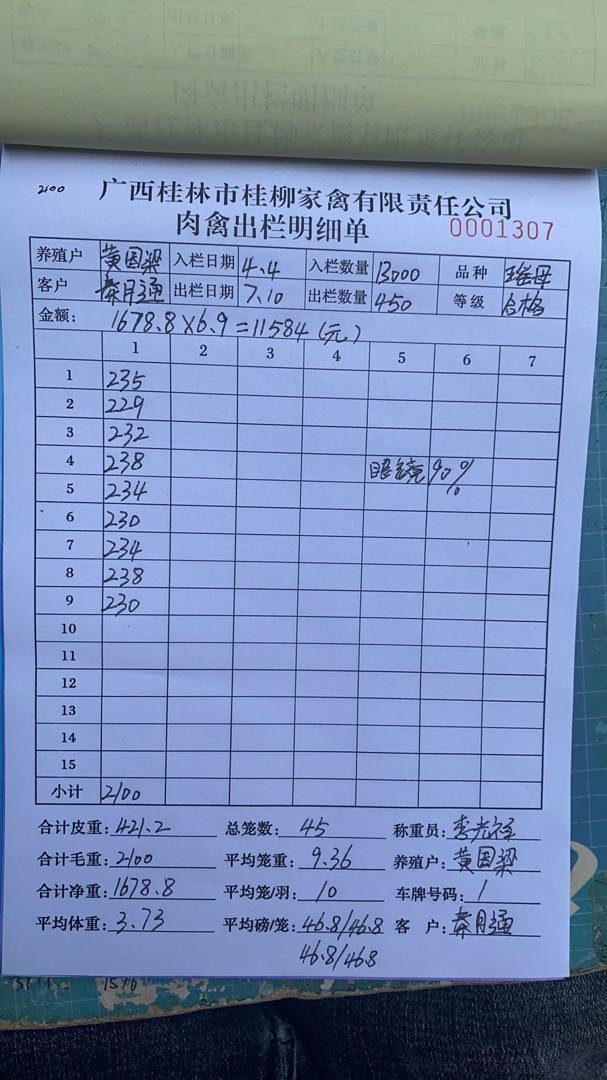 2100
广西桂林市桂柳家禽有限责任公司
肉禽出栏明细单 0001307
养殖户 黄国梁 入栏日期 4.4 入栏数量 13000 品种 瑶母
客户 秦月通 出栏日期 7.10 出栏数量 450 等级 合格
金额: 1678.8×6.9=11584(元)
1 2 3 4 5 6 7
1 235
2 229
3 232
4 238 眼镜 90%
5 234
6 230
7 234
8 238
9 230
10
11
12
13
14
15
小计 2100
合计皮重: 421.2 总笼数: 45 称重员: 李光
合计毛重: 2100 平均笼重: 9.36 养殖户: 黄国梁
合计净重: 1678.8 平均笼/羽: 10 车牌号码: 1
平均体重: 3.73 平均磅/笼: 46.8/46.8 客 户: 秦月通
46.8/46.8